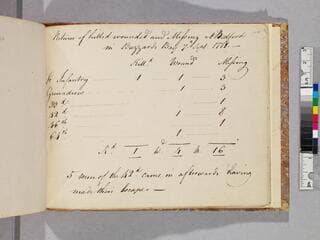 Return of killed wounded and Missing at Bedford
in Buzzards Bay 7th Sept 1778
Kill.d Wound.d Missing
Lt Infantry 1 1 3
Grenadiers 1 3
33d 1
42d 1 8
46th 1 1
64th 1
Rk 1 Do 4 Do 16
5 men of the 42d came in afterwards having
made their Escape —